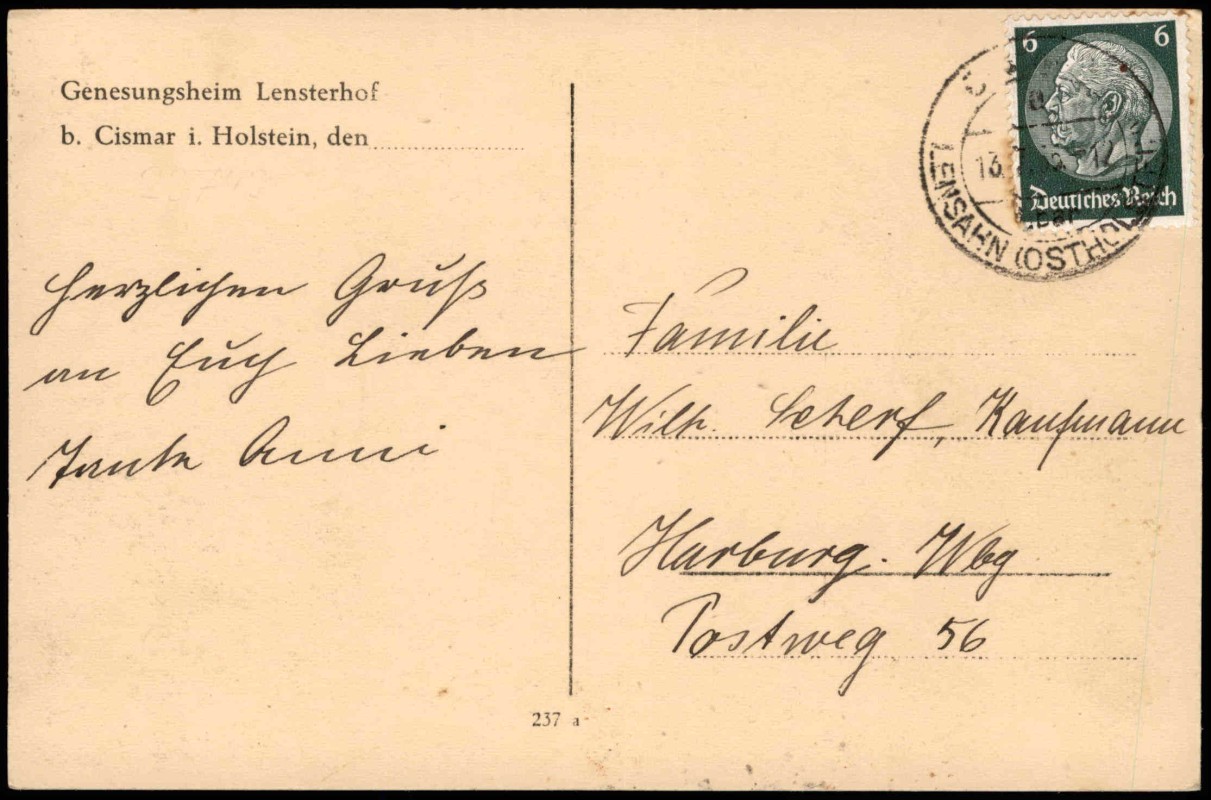 Genesungsheim Lensterhof
b. Cismar i. Holstein, den
Herzlichen Gruß
an Euch Lieben
Tante Anni
6 6
Deutsches Reich
LENSAHN (OSTHO
Familie
Wilh. Scherf, Kaufmann
Harburg-Wbg
Postweg 56
237 a